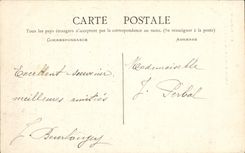 CARTE POSTALE
Tous les pays étrangers n'acceptent pas la correspondance au recto. (Se renseigner à la poste)
CORRESPONDANCE
ADRESSE
Excellent souvenir
meilleures amitiés
Mademoiselle
J.
J.